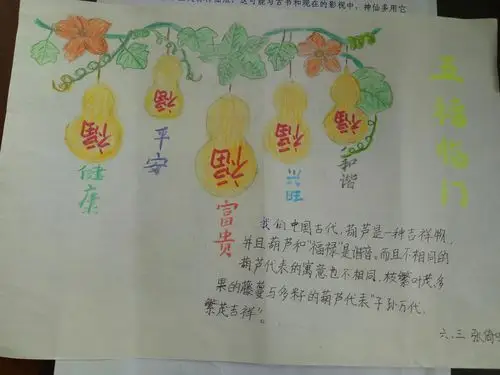 这可能与古书和现在的影视中，神仙多用它
福
福
福
福
福
健康
平安
富贵
和谐
五福临门
我们中国古代，葫芦是一种吉祥物，
并且葫芦和“福禄”是谐音。而且不相同的
葫芦代表的寓意也不相同，枝繁叶茂，多
果的藤蔓与多籽的葫芦代表“子孙万代，
繁茂吉祥”。
六.三 张